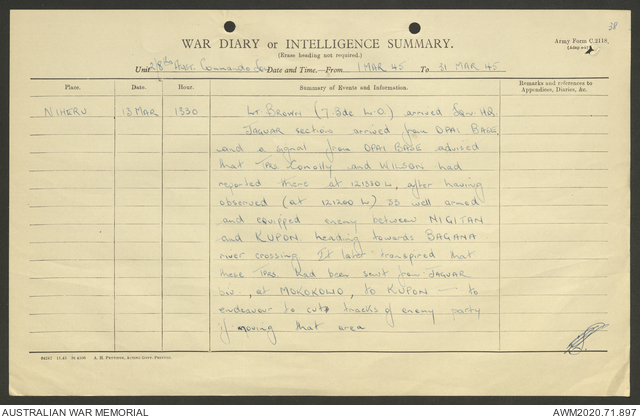 38
WAR DIARY or INTELLIGENCE SUMMARY.
(Erase heading not required.)
Army Form C.2118.
Unit 2/8th Aust. Commando Sqn Date and Time.—From 1 MAR 45 To 31 MAR 45
Place. Date. Hour. Summary of Events and Information. Remarks and references to Appendices, Diaries, &c.
NIHERU 13 MAR 1330 Lt. BROWN (7 Bde L.O.) arrived Sqn HQ
JAGUAR section arrived from OPAI BASE
and a signal from OPAI BASE advised
that TPRS Conolly and WILSON had
reported there at 121330 L, after having
observed (at 121200 L) 35 well armed
and equipped enemy between NIGITAN
and KUPON heading towards BAGANA
river crossing. It later transpired that
these TPRS. had been sent from JAGUAR
biv, at MOKOKOWO, to KUPON — to
endeavour to cut tracks of enemy party
if moving that area
A. H. PETTIFER, ACTING GOVT. PRINTER.
AUSTRALIAN WAR MEMORIAL
AWM2020.71.897